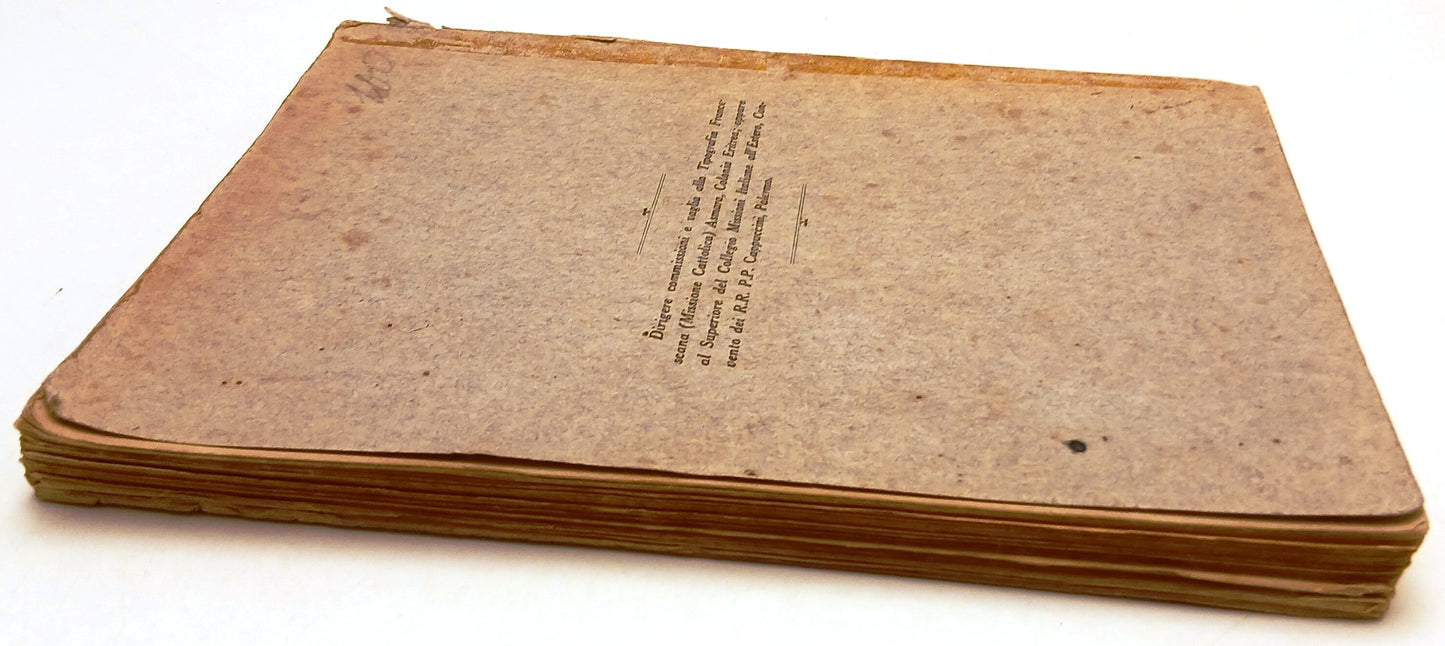 Dirigere commissioni e vaglia alla Tipografia France-
scana (Missione Cattolica) Asmara, Colonia Eritrea; oppure
al Superiore del Collegio Missioni Italiane all'Estero, Con-
vento dei R.R. P.P. Cappuccini, Palermo.